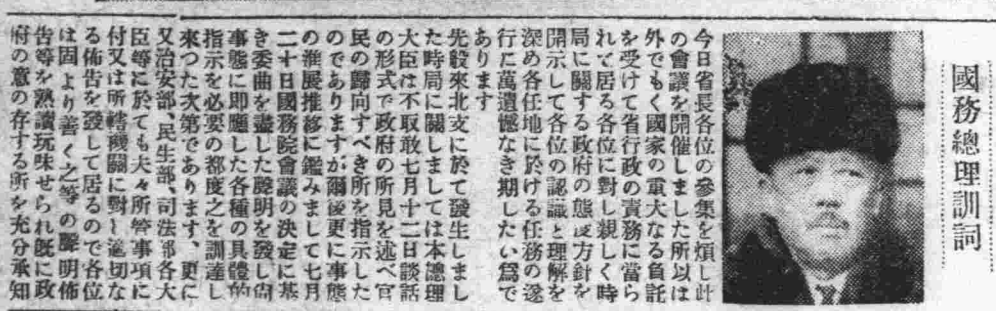 國務總理訓詞
今日省長各位の參集を煩し此
の會議を開催しました所以は
外でもく國家の重大なる負託
を受けて省行政の責務に當ら
れて居る各位に對し親しく時
局に關する政府の態度方針を
開示して各位の認識と理解を
深め各任地に於ける任務の遂
行に萬遺憾なき期したい爲で
あります
先般來北支に於て發生しまし
た時局に關しましては本總理
大臣は不取敢七月十二日談話
の形式で政府の所見を述べ官
民の歸向すべき所を指示した
のでありますが爾後更に事態
の進展推移に鑑みまして七月
二十日國務院會議の決定に基
き委曲を盡した聲明を發し尙
事態に即應した各種の具體的
指示を必要の都度之を訓達し
來つた次第であります、更に
又治安部、民生部、司法部各大
臣等に於ても夫々所管事項に
付又は所轄機關に對し適切な
る佈告を發して居るので各位
は固より善く之等の聲明佈
告等を熟讀玩味せられ既に政
府の意の存する所を充分承知